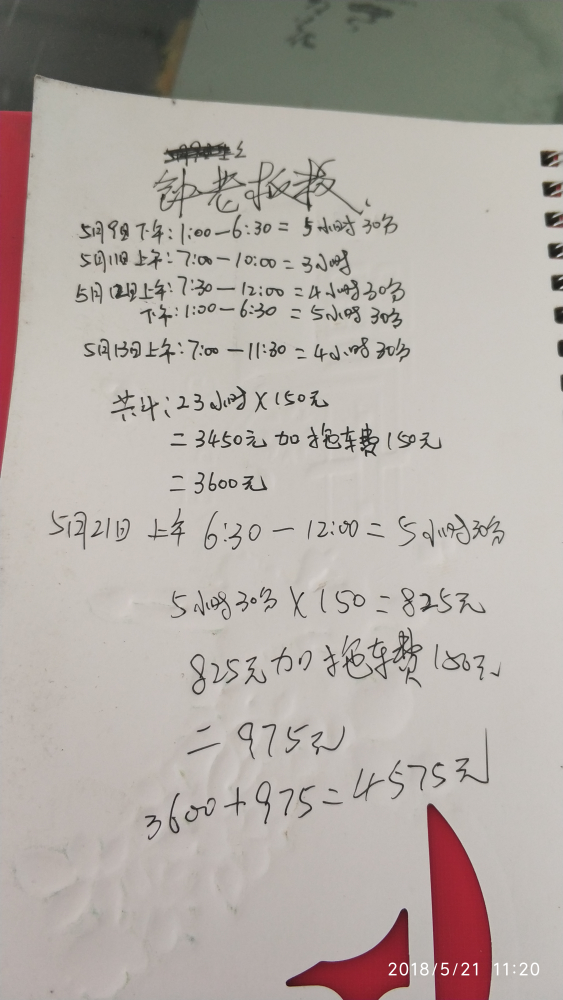 钟老板
5月9日下午:1:00—6:30=5小时30分
5月11日上午:7:00—10:00=3小时
5月12日上午:7:30—12:00=4小时30分
下午:1:00—6:30=5小时30分
5月13日上午:7:00—11:30=4小时30分
共计:23小时X150元
=3450元加拖车费150元
=3600元
5月21日 上午 6:30—12:00=5小时30分
5小时30分X150=825元
825元加拖车费150元
=975元
3600+975=4575元
2018/5/21 11:20